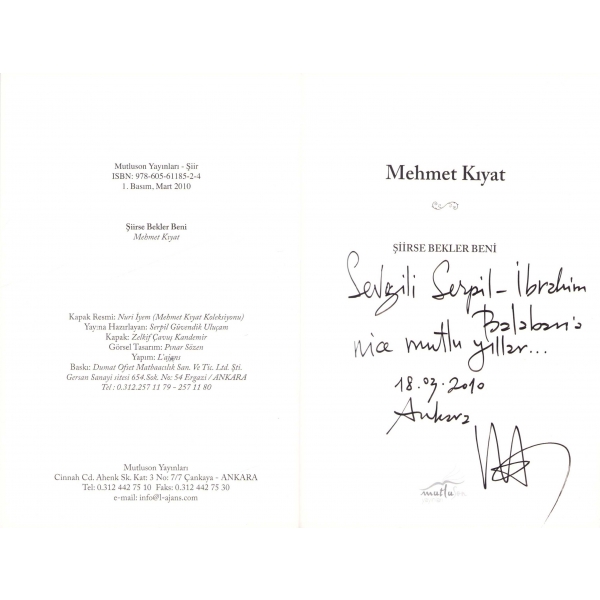 Mutluson Yayınları - Şiir
ISBN: 978-605-61185-2-4
1. Basım, Mart 2010
Şiirse Bekler Beni
Mehmet Kıyat
Kapak Resmi: Nuri İyem (Mehmet Kıyat Koleksiyonu)
Yayına Hazırlayan: Serpil Güvendik Uluçam
Kapak: Zelkif Çavuş Kandemir
Görsel Tasarım: Pınar Sözen
Yapım: L'ajans
Baskı: Dumat Ofset Matbaacılık San. Ve Tic. Ltd. Şti.
Gersan Sanayi sitesi 654.Sok. No: 54 Ergazi / ANKARA
Tel : 0.312.257 11 79 - 257 11 80
Mutluson Yayınları
Cinnah Cd. Ahenk Sk. Kat: 3 No: 7/7 Çankaya - ANKARA
Tel: 0.312 442 75 10 Faks: 0.312 442 75 30
e-mail: info@l-ajans.com
Mehmet Kıyat
ŞİİRSE BEKLER BENİ
Sevgili Serpil - İbrahim
Balaban'a
nice mutlu yıllar...
18.03.2010
Ankara